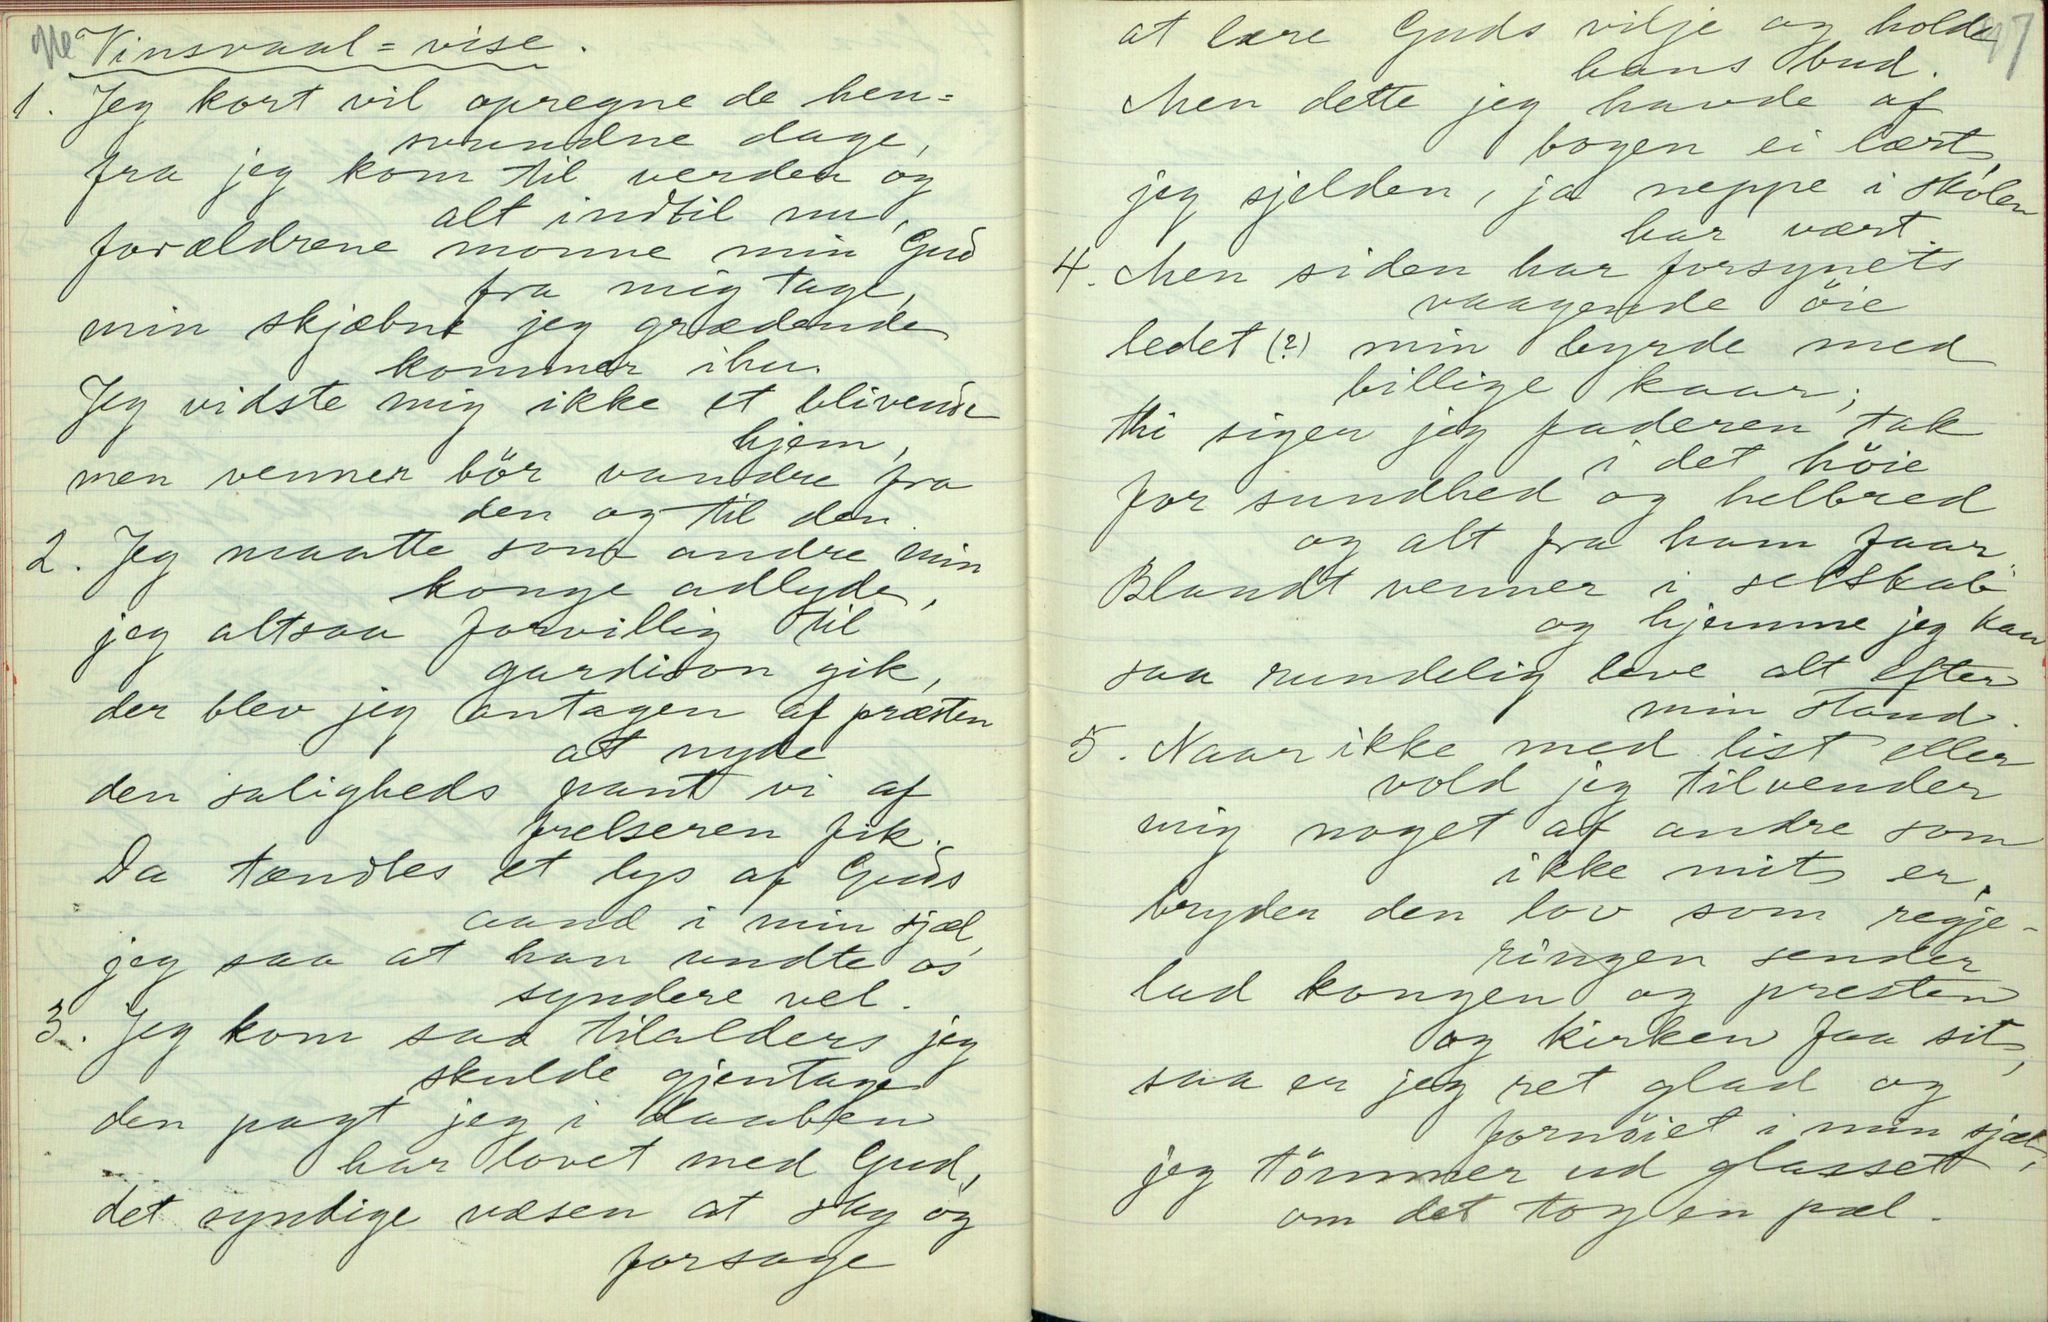 Vinsvaal=vise.
1. Jeg kort vil opregne de hen=
svundne dage,
fra jeg kom til verden og
alt indtil nu,
forældrene monne min Gud
fra mig tage,
min skjæbne jeg grædende
kommer ihu.
Jeg vidste mig ikke et blivende
hjem,
men venner bör vandre fra
den og til den.
2. Jeg maatte som andre min
konge adlyde,
jeg altsaa forvillig til
gardison gik,
der blev jeg antagen af præsten
at nyde
den saligheds pant vi af
frelseren fik.
Da tændtes et lys af Guds
aand i min sjæl,
jeg saa at han undte os
syndere vel.
3. Jeg kom saa tilalders jeg
skulde gjentage
den pagt jeg i daaben
har lovet med Gud,
det syndige væsen at sky og
forsage
47
at lære Guds vilje og holde
hans bud.
Men dette jeg havde af
bogen ei lært,
jeg sjelden, ja neppe i skolen
har vært.
4. Men siden har forsynets
vaagende öie
ledet (?) min byrde med
billige kaar;
thi siger jeg faderen tak
i det höie
for sundhed og helbred
og alt fra ham faar
Blandt venner i selskab
og hjemme jeg kan
saa rundelig leve alt efter
min stand.
5. Naar ikke med list eller
vold jeg tilvender
mig noget af andre som
ikke mit er,
bryder den lov som regje-
ringen sender
lad kongen og presten
og kirken faa sit,
saa er jeg ret glad og
fornöiet i min sjæl,
jeg tömmer ud glasset
om det tog en pæl.